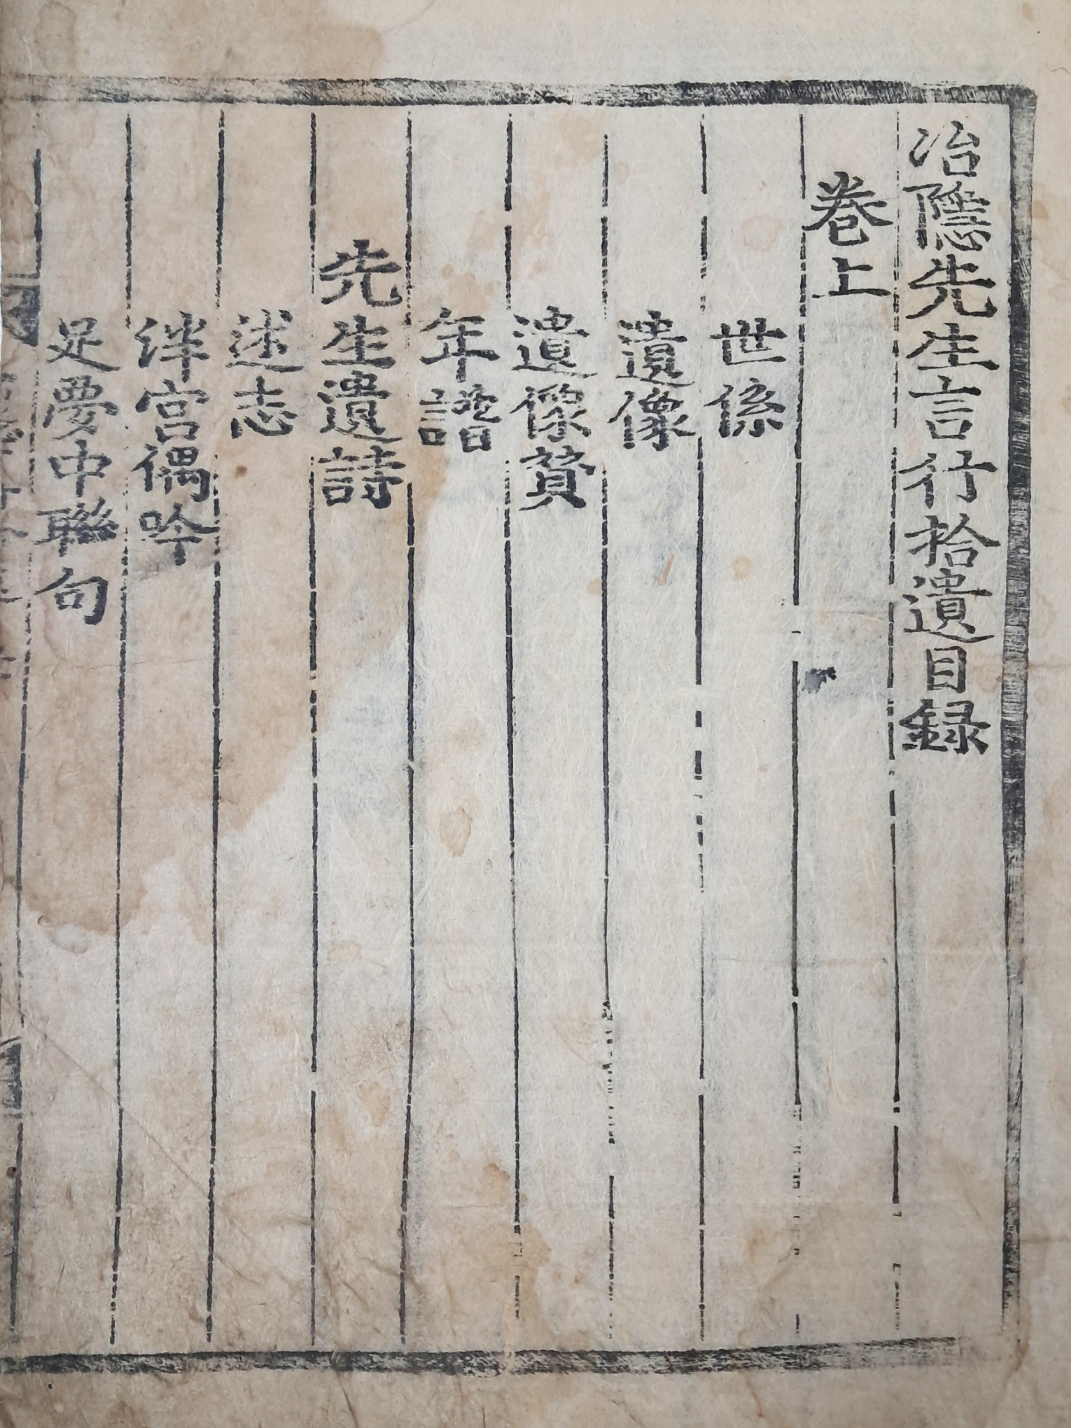 冶隱先生言行拾遺目録
卷上
世係
遺像
遺像賛
年譜
先生遺詩
述志
泮宮偶吟
足夢中聯句